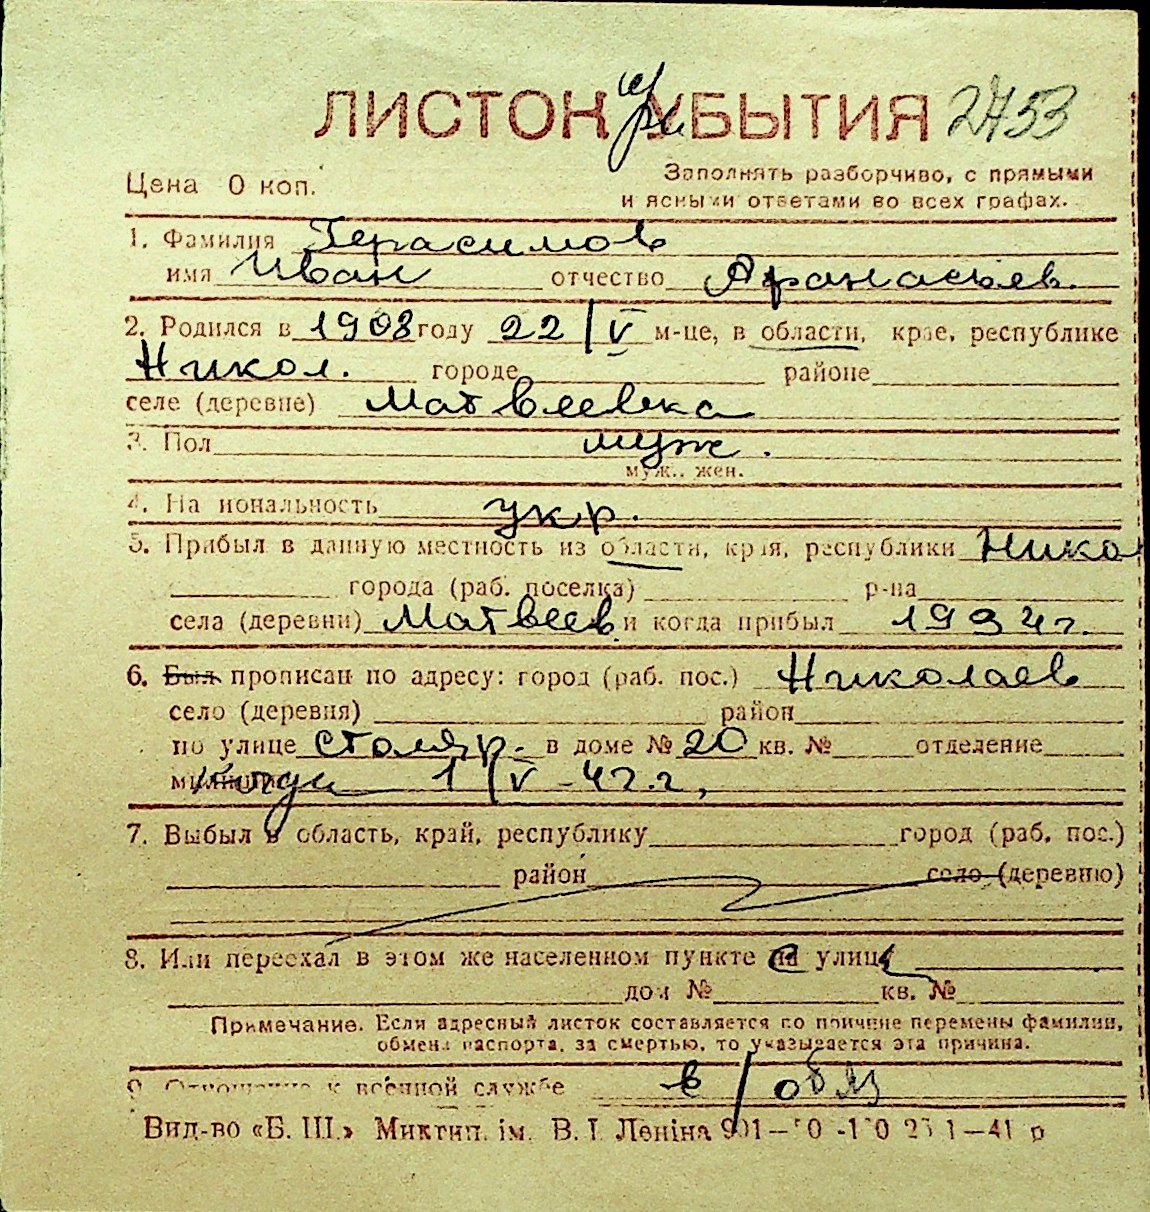 ЛИСТОК УБЫТИЯ 2453
Цена 0 коп.
Заполнять разборчиво, с прямыми
и ясными ответами во всех графах.
1. Фамилия Герасимов
имя Иван отчество Афанасьев.
2. Родился в 1908 году 22/V м-це, в области, крае, республике
Никол. городе районе
селе (деревне) Матвеевка
3. Пол муж.
муж. жен.
4. На иональность укр.
5. Прибыл в данную местность из области, края, республики Нико
города (раб. поселка) р-на
села (деревни) Матвеев и когда прибыл 1934г.
6. Был прописан по адресу: город (раб. пос.) Николаев
село (деревня) район
по улице столяр. в доме № 20 кв. № отделение
когда 1/V-42.г,
7. Выбыл в область, край, республику город (раб. пос.)
район село (деревню)
8. Или переехал в этом же населенном пункте с улицы
дом № кв. №
Примечание. Если адресный листок составляется по причине перемены фамилии,
обмена паспорта, за смертью, то указывается эта причина.
9. Отношение к военной службе в/обяз
Вид-во «Б. Ш.» Миктип. ім. В. І. Леніна